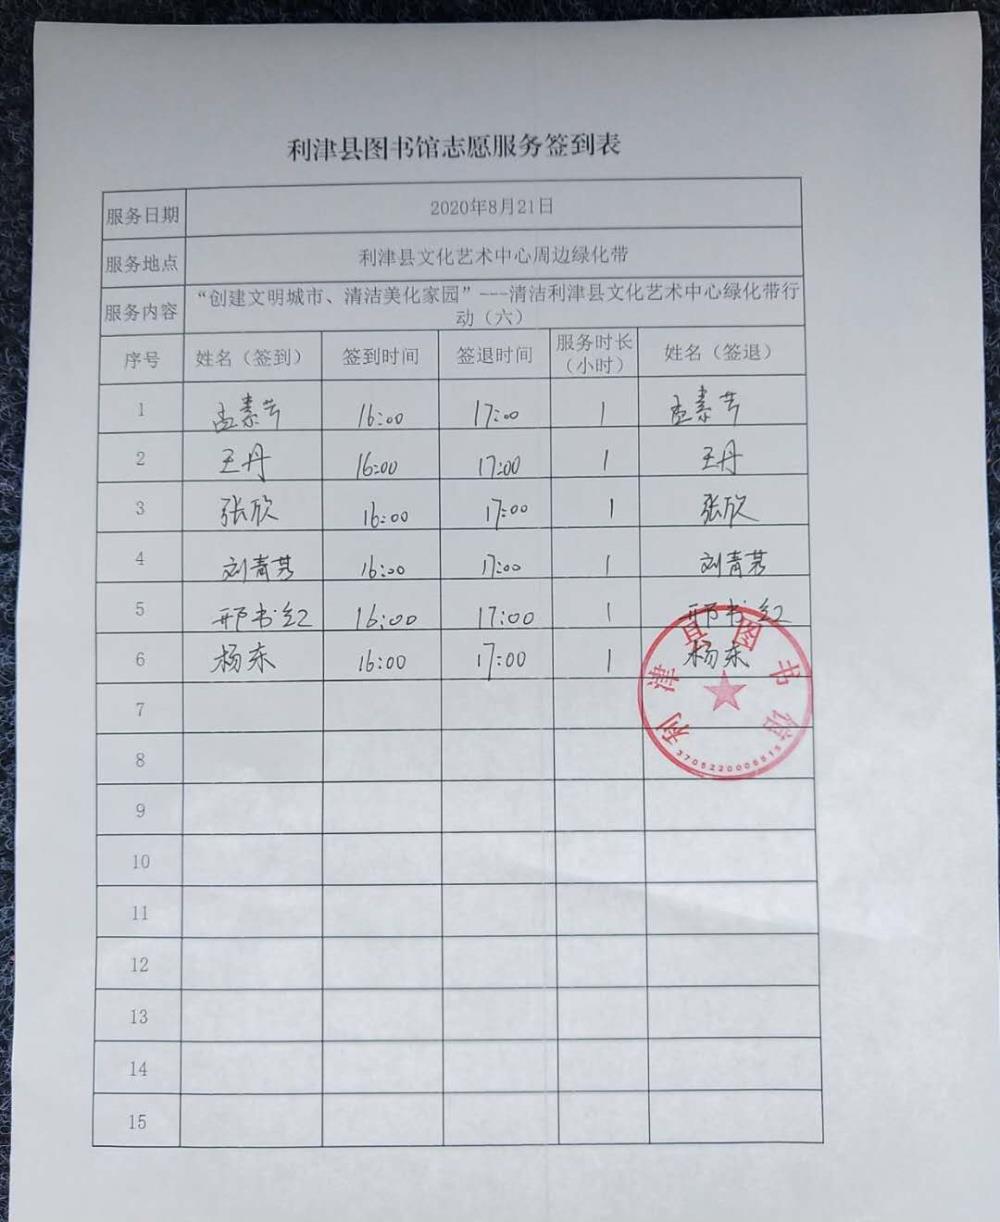 利津县图书馆志愿服务签到表
服务日期 2020年8月21日
服务地点 利津县文化艺术中心周边绿化带
服务内容 “创建文明城市、清洁美化家园”---清洁利津县文化艺术中心绿化带行
动（六）
序号 姓名（签到） 签到时间 签退时间 服务时长
（小时） 姓名（签退）
1 孟素芹 16:00 17:00 1 孟素芹
2 王丹 16:00 17:00 1 王丹
3 张欣 16:00 17:00 1 张欣
4 刘青 16:00 17:00 1 刘青
5 邢书红 16:00 17:00 1 邢书红
6 杨东 16:00 17:00 1 杨东
7
8
9
10
11
12
13
14
15
利津县图书馆